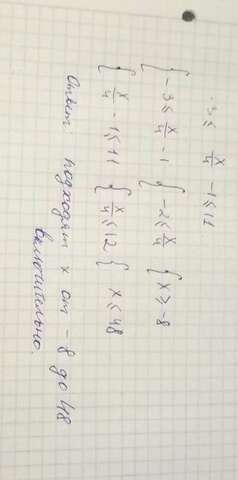 -3 ≤ x/4 - 1 ≤ 11
{ -3 ≤ x/4 - 1 { -2 ≤ x/4 { x ≥ -8
{ x/4 - 1 ≤ 11 { x/4 ≤ 12 { x ≤ 48
Ответ подходят x от -8 до 48
включительно.